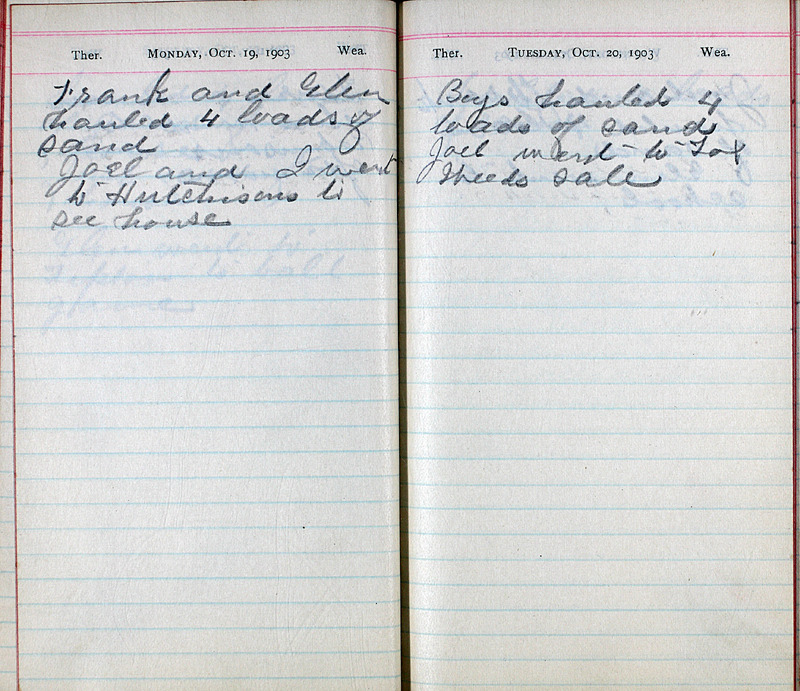 Ther. MONDAY, OCT. 19, 1903 Wea.
Frank and Glen
hauled 4 loads of
sand
Joel and I went
to Hutchisons to
see house
Ther. TUESDAY, OCT. 20, 1903 Wea.
Boys hauled 4
loads of sand
Joel went to Fox
sale